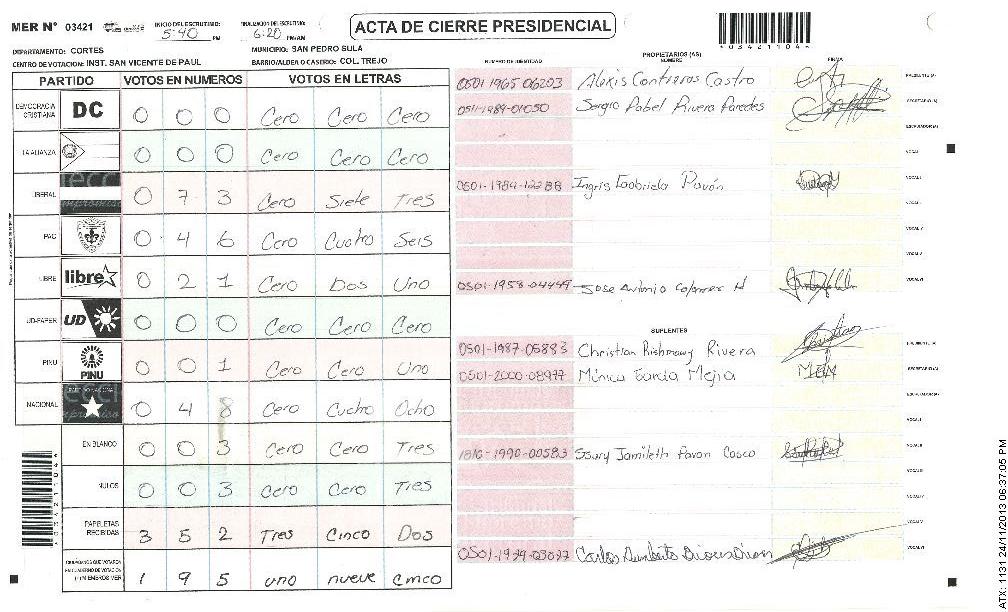 MER N° 03421 INICIO DEL ESCRUTINIO: 5:40 PM FINALIZACION DEL ESCRUTINIO: 6:20 PM/AM ACTA DE CIERRE PRESIDENCIAL
*03421104*
DEPARTAMENTO: CORTES MUNICIPIO: SAN PEDRO SULA
CENTRO DE VOTACION: INST. SAN VICENTE DE PAUL BARRIO/ALDEA O CASERIO: COL. TREJO
PARTIDO VOTOS EN NUMEROS VOTOS EN LETRAS
DEMOCRACIA CRISTIANA DC 0 0 0 Cero Cero Cero
LA ALIANZA 0 0 0 Cero Cero Cero
LIBERAL 0 7 3 Cero Siete Tres
PAC 0 4 6 Cero Cuatro Seis
LIBRE libre 0 2 1 Cero Dos Uno
UD-FAPER UD 0 0 0 Cero Cero Cero
PINU PINU 0 0 1 Cero Cero Uno
NACIONAL 0 4 8 Cero Cuatro Ocho
EN BLANCO 0 0 3 Cero Cero Tres
NULOS 0 0 3 Cero Cero Tres
PAPELETAS RECIBIDAS 3 5 2 Tres Cinco Dos
CIUDADANOS QUE VOTARON
EN CUADERNO DE VOTACION
MIEMBROS MER 1 9 5 uno nueve Cinco
PROPIETARIOS (AS)
NUMERO DE IDENTIDAD NOMBRE FIRMA
0501 1965 06203 Alexis Contreras Castro PRESIDENTE (A)
0511-1989-01050 Sergio Pabel Rivera Paredes SECRETARIO (A)
ESCRUTADOR (A)
VOCAL I
0501-1984-12288 Ingris Gabriela Pavón
VOCAL V
0501-1958-04449 Jose Antonio H VOCAL VI
SUPLENTES
0501-1987-05883 Christian Rishmawy Rivera
0501-2000-08977 Mónica García Mejia SECRETARIO (A)
ESCRUTADOR (A)
VOCAL I
1810-1990-00583 Ssury Jamileth Pavon Casco VOCAL II
VOCAL V
Carlos Humberto VOCAL VI
ATX: 1131 24/11/2013 06:37:05 PM